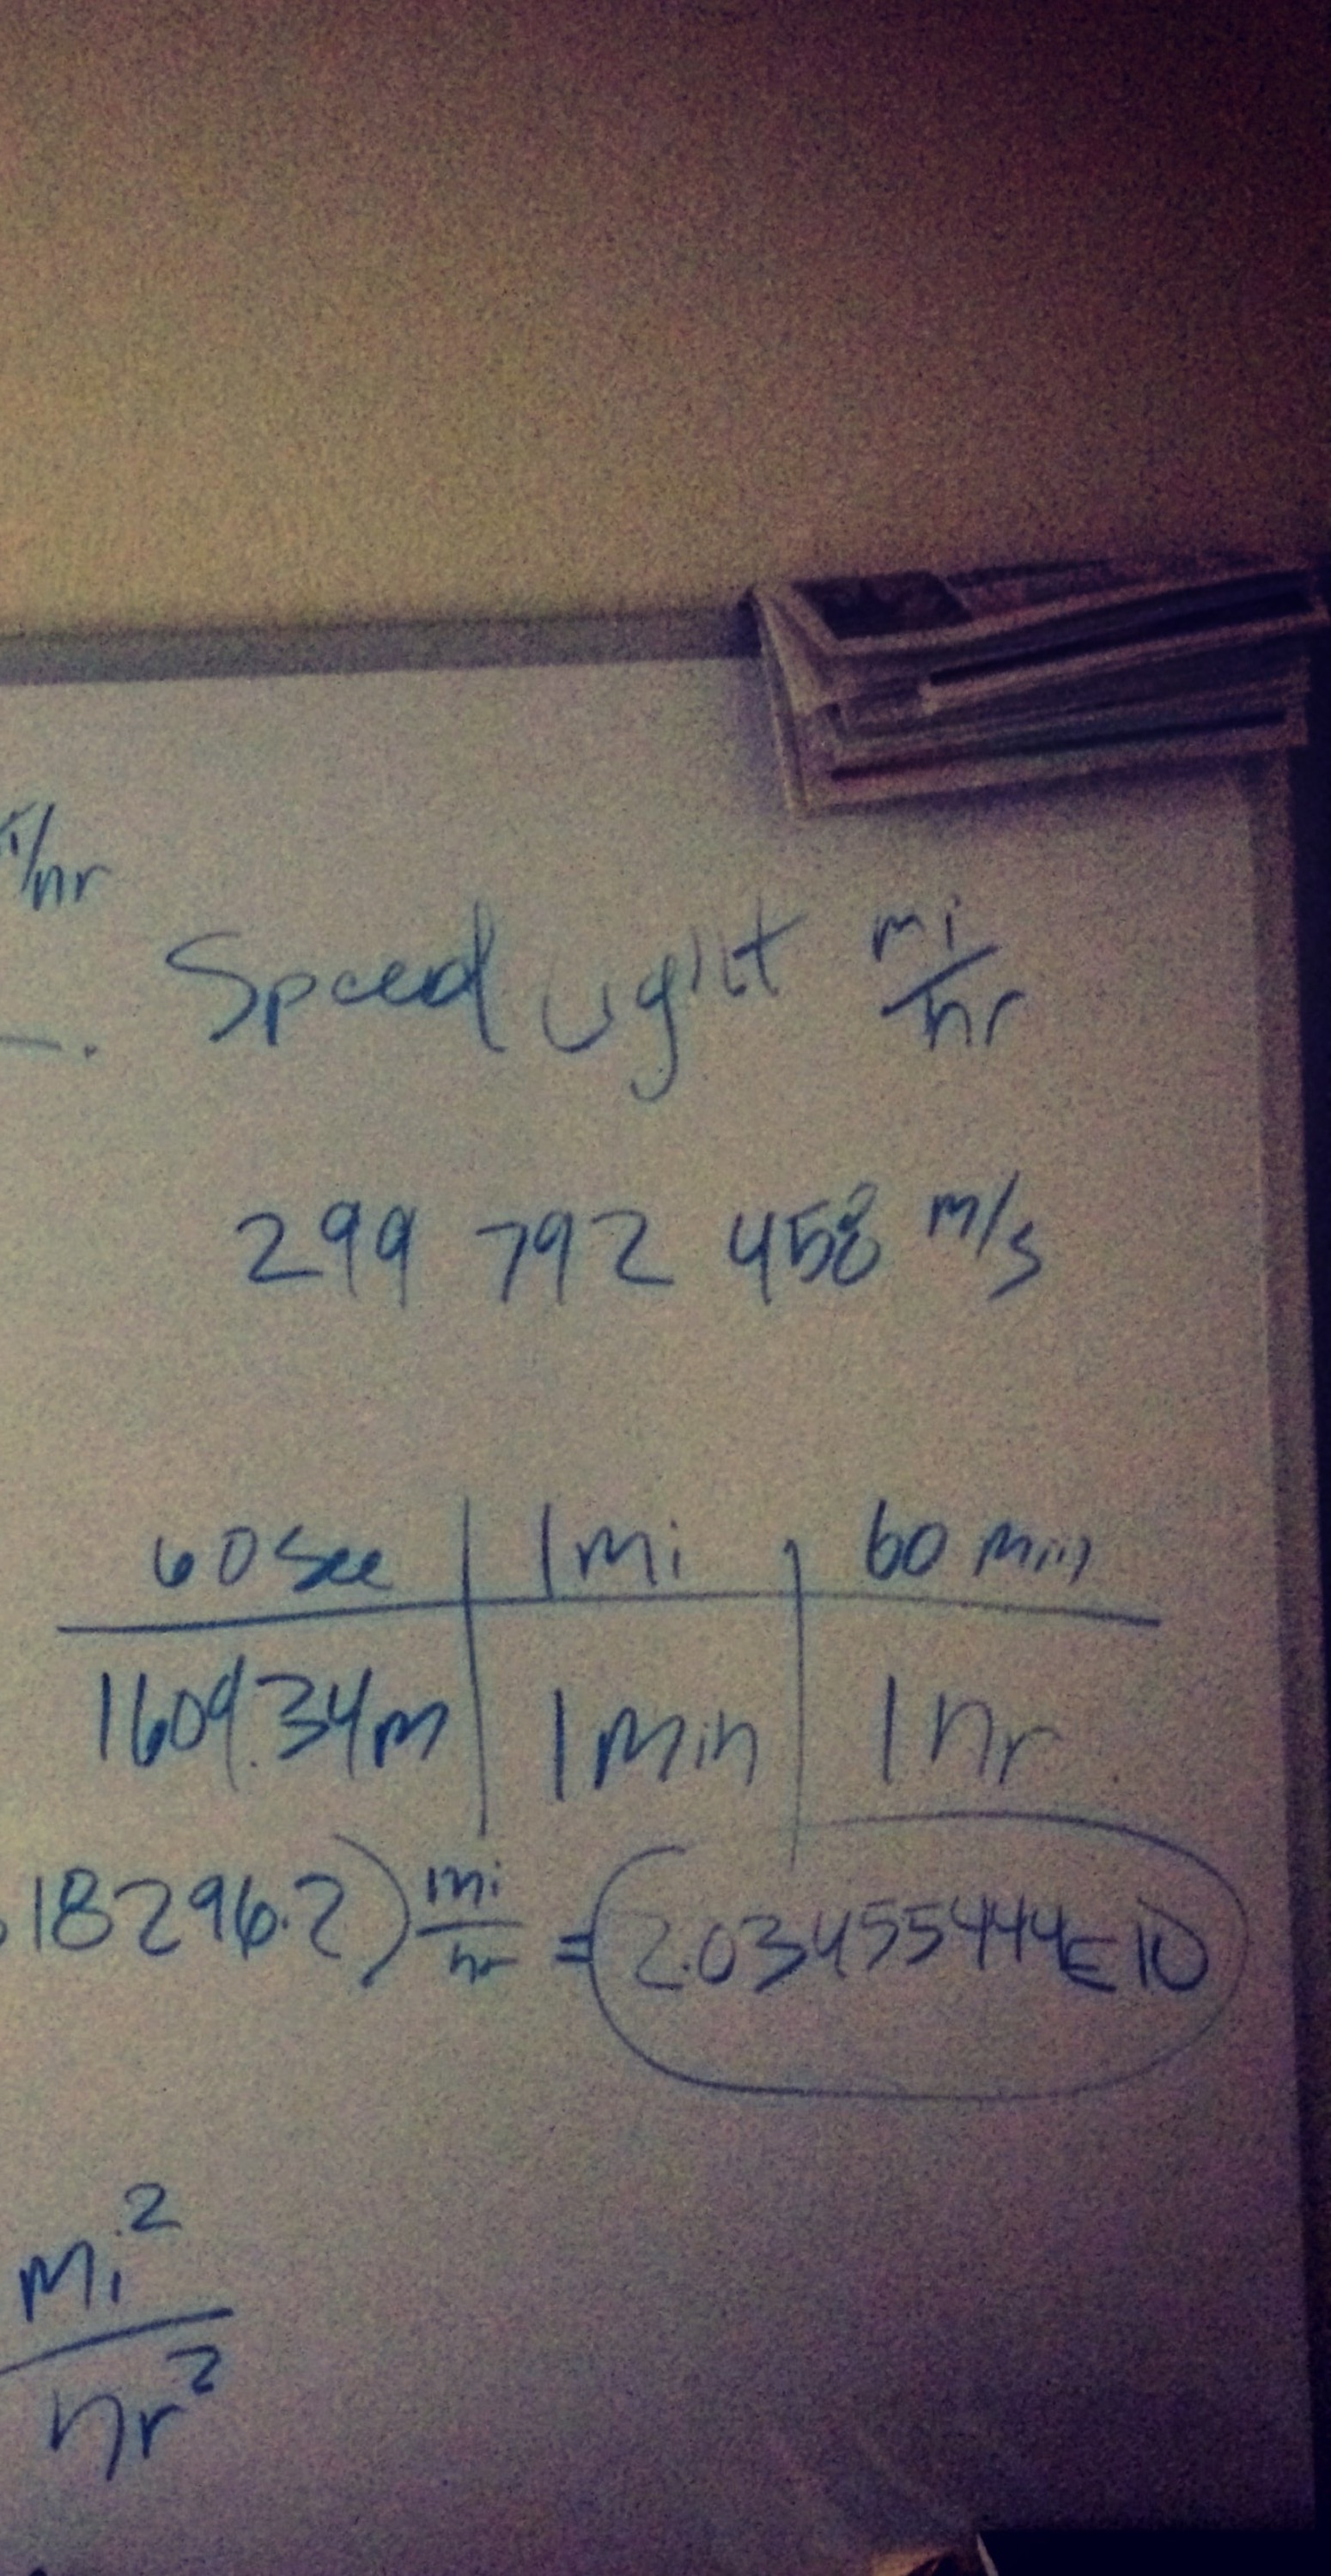 i/hr
Speed Light mi/hr
299 792 458 m/s
60 sec | 1 mi | 60 min
1609.34m | 1 min | 1 hr
18296.2) mi/hr = 2.034555444E10
mi²/hr²